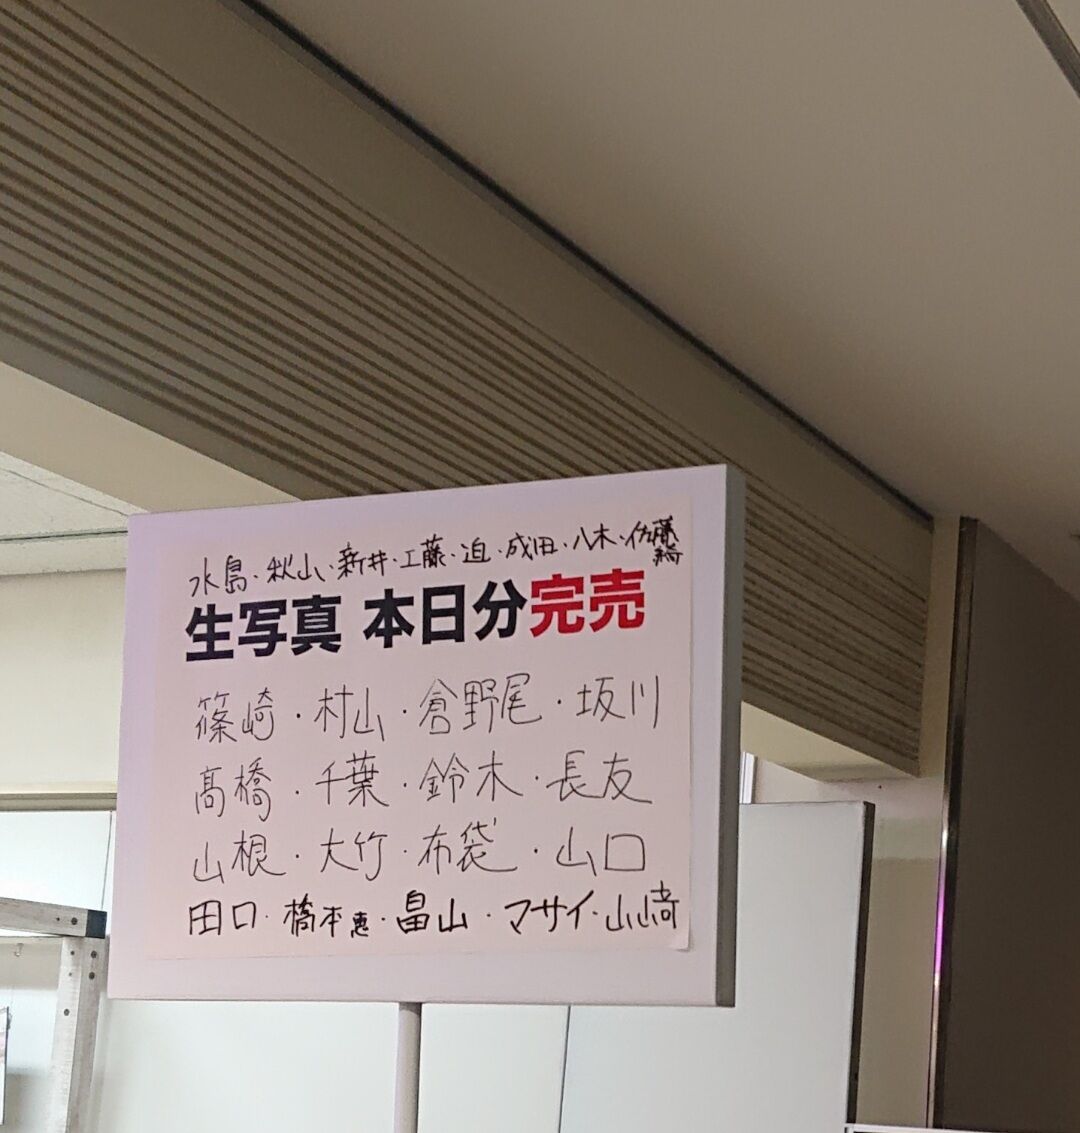 水島・秋山・新井・工藤・迫・成田・八木・佐藤綺
生写真 本日分完売
篠崎・村山・倉野尾・坂川
髙橋・千葉・鈴木・長友
山根・大竹・布袋・山口
田口・橋本恵・畠山・マサイ・山﨑